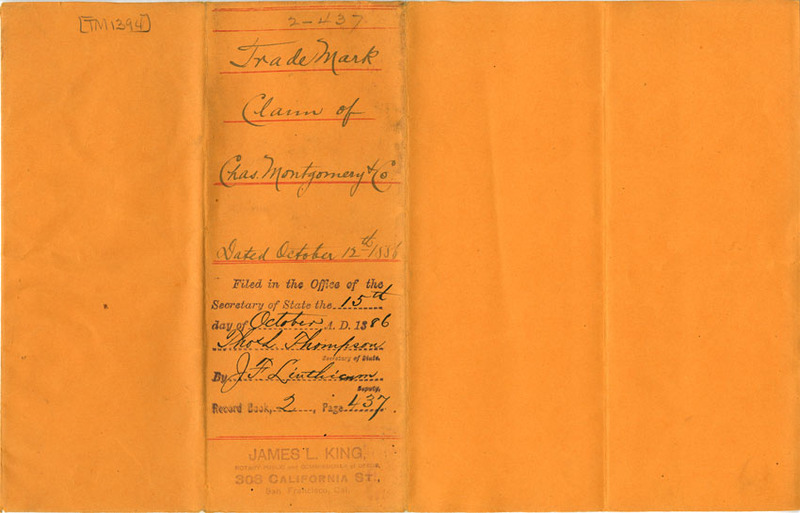 [TM1394]
2-437
Trade Mark
Claim of
Chas. Montgomery & Co.
Dated October 12th 1886
Filed in the Office of the
Secretary of State the 15th
day of October A. D. 1886
Thos L Thompson
Secretary of State.
By J F Linthicum
Deputy.
Record Book, 2, Page 437.
JAMES L. KING,
NOTARY PUBLIC AND COMMISSIONER OF DEEDS,
308 CALIFORNIA ST.,
San Francisco, Cal.